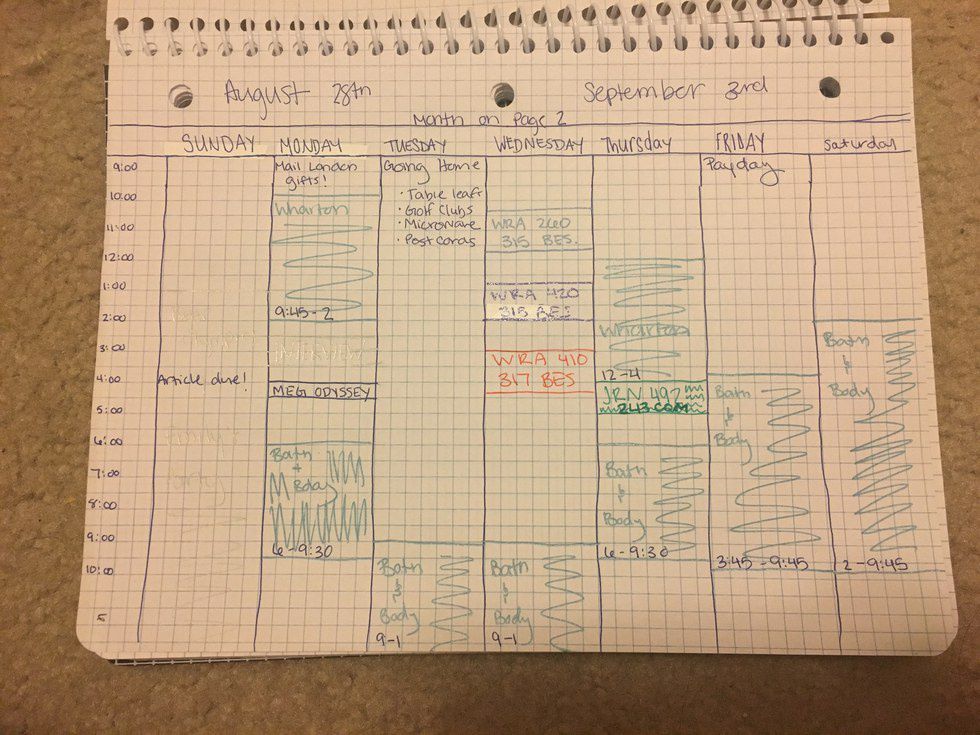 August 28th
September 3rd
Month on Page 2
SUNDAY
MONDAY
TUESDAY
WEDNESDAY
Thursday
FRIDAY
Saturday
9:00
10:00
11:00
12:00
1:00
2:00
3:00
4:00
5:00
6:00
7:00
8:00
9:00
10:00
Article due!
Mail London
gifts!
Wharton
9:45-2
MEG ODYSSEY
Bath
+
Body
6-9:30
Going Home
• Table leaf
• Golf Clubs
• Microwave
• Post cards
Bath
&
Body
9-1
WRA 260
315 BES.
WRA 420
315 BES
WRA 410
317 BES
Bath
&
Body
9-1
Wharton
12-4
JRN 492
243 COM
Bath
&
Body
6-9:30
Payday
Bath
&
Body
3:45-9:45
Bath
&
Body
2-9:45